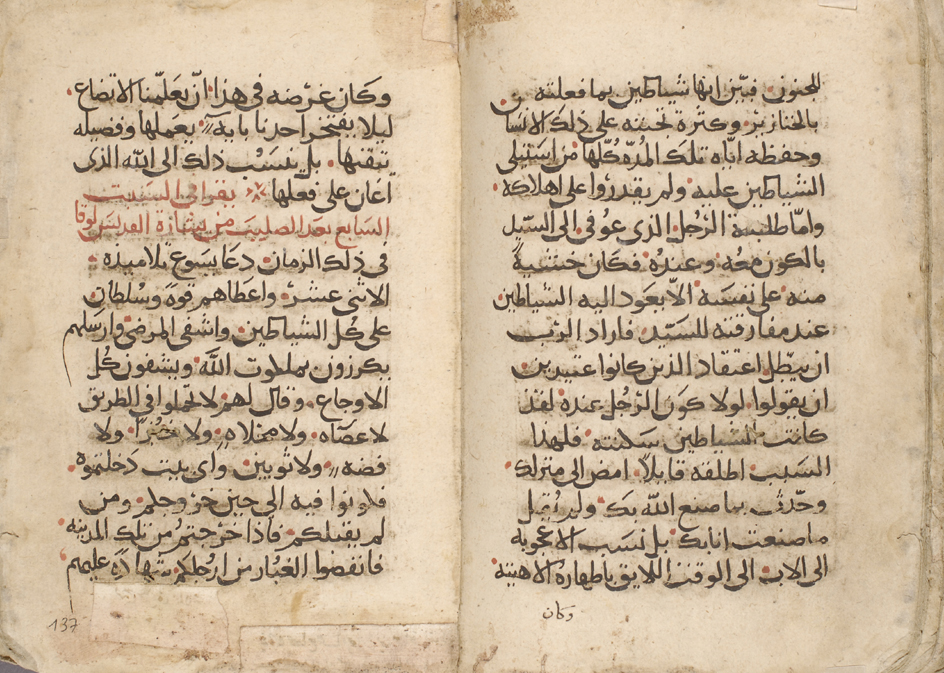 المجنون فبيّن انها شياطين بما فعلته
بالخنازير وكثرة تحننه على ذلك الانسان
وحفظه ايّاه تلك المدّه كلّها من استيلى
الشياطين عليه ولم يقدروا على اهلاكه
وامّا طلبية الرّجل الذى عوفى الى السّيّد
بالكون معه وعنده فكان خشيةً
منه على نفسه الّا يعود اليه الشياطين
عند مفارقته للسيّد فاراد الربّ
ان يبطّل اعتقاد الذين كانوا عتيدين
ان يقولوا لولا كون الرّجل عنده لقد
كانت الشياطين سكنته فلهذا
السبب اطلقه قايلاً امض الى منزلك
وحدّث بما صنع الله بك ولم يقل
ما صنعت انا بك بل نسب الاعجوبه
الى الاب الى الوقت اللايق باظهاره الاهيته
وكان
وكان غرضه فى هذا انّ يعلّمنا الاتضاع
ليلا يفتخر احدنا باية يعملها وفضيله
يتقنها بل ينسب ذلك الى الله الذى
اعان على فعلها يقرا فى السبت
السابع بعد الصليب من بشارة القديس لوقا
فى ذلك الزمان دعا يسوع تلاميذه
الاثنى عشر واعطاهم قوه وسلطان
على كل الشياطين واشفى المرضى وارسلهم
يكرزون بملكوت الله ويشفون كل
الاوجاع وقال لهم لا تحملوا فى الطريق
لا عصاه ولا مخلاه ولا خبزاً ولا
فضه ولا ثوبين واى بيت دخلتموه
فكونوا فيه الى حين خروجكم ومن
لم يقبلكم فاذا خرجتم من تلك المدينه
فانفضوا الغبار من ارجلكم شهادةً عليهم
137